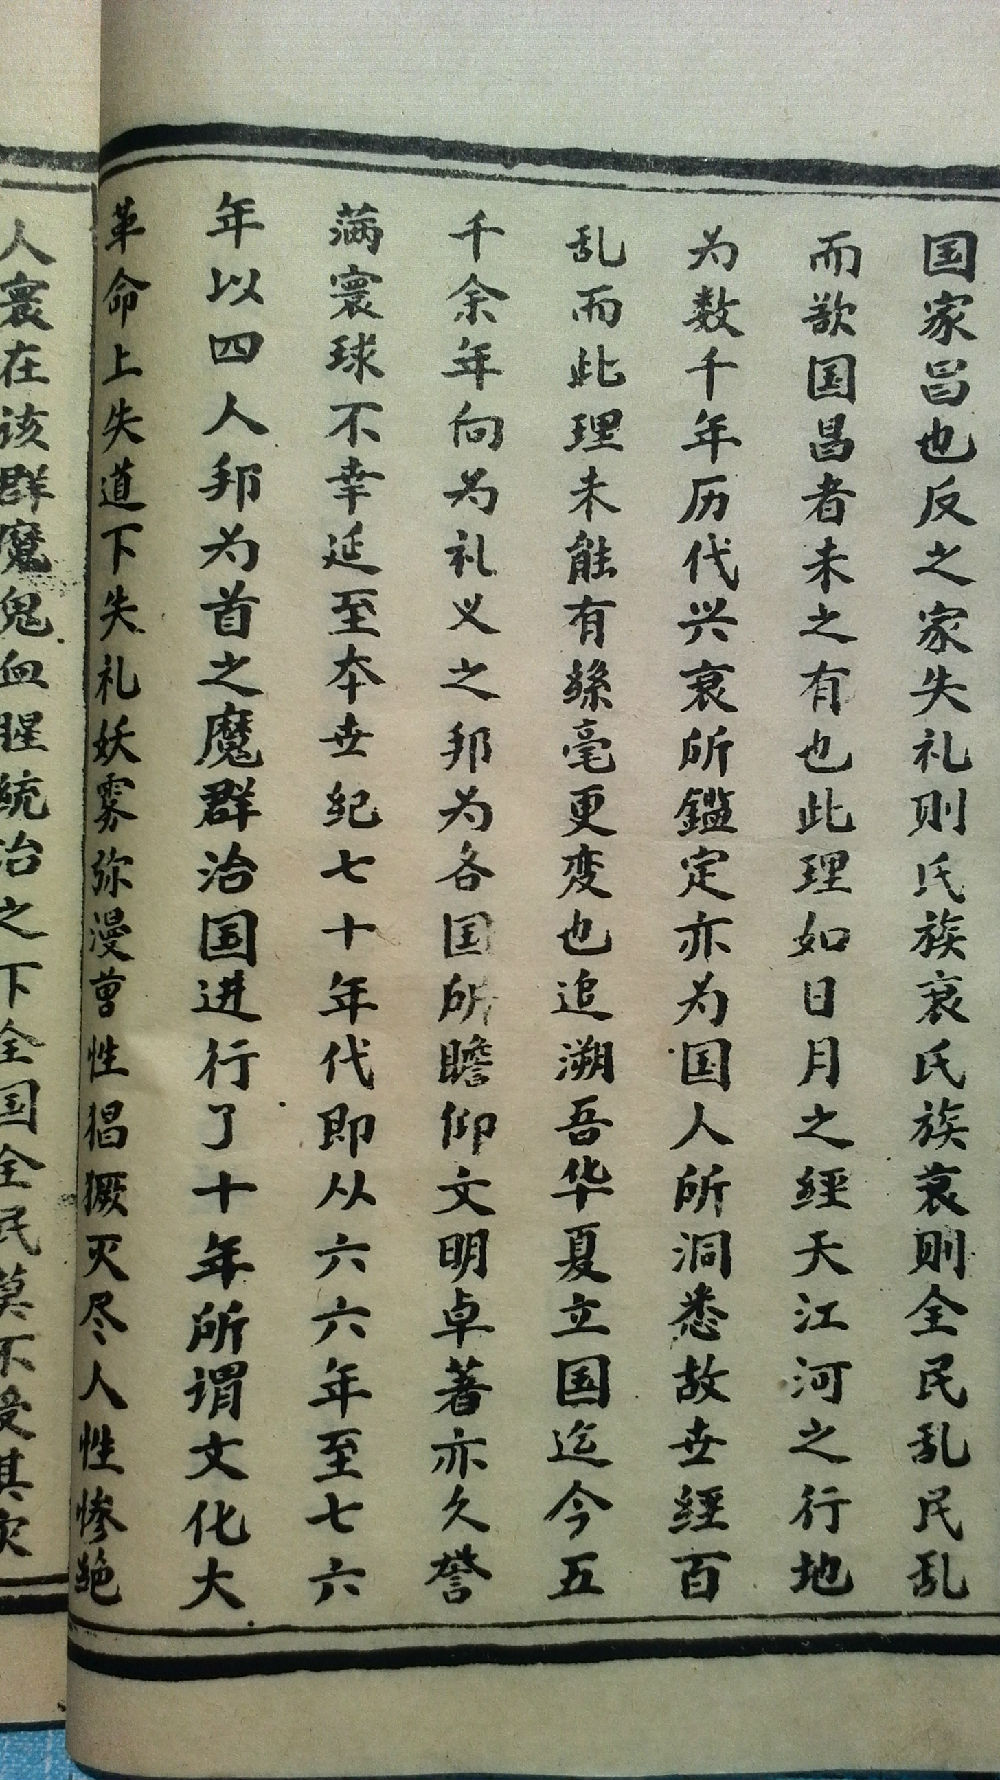 国家昌也反之家失礼则氏族衰氏族衰则全民乱民乱
而欲国昌者未之有也此理如日月之經天江河之行地
为数千年历代兴衰所鑑定亦为国人所洞悉故世經百
乱而此理未能有丝毫更变也追溯吾华夏立国迄今五
千余年向为礼义之邦为各国所瞻仰文明卓著亦久誉
满寰球不幸延至本世纪七十年代即从六六年至七六
年以四人邦为首之魔群治国进行了十年所谓文化大
革命上失道下失礼妖雾弥漫兽性猖獗灭尽人性惨绝
人寰在该群魔鬼血腥統治之下全国全民莫不受其灾